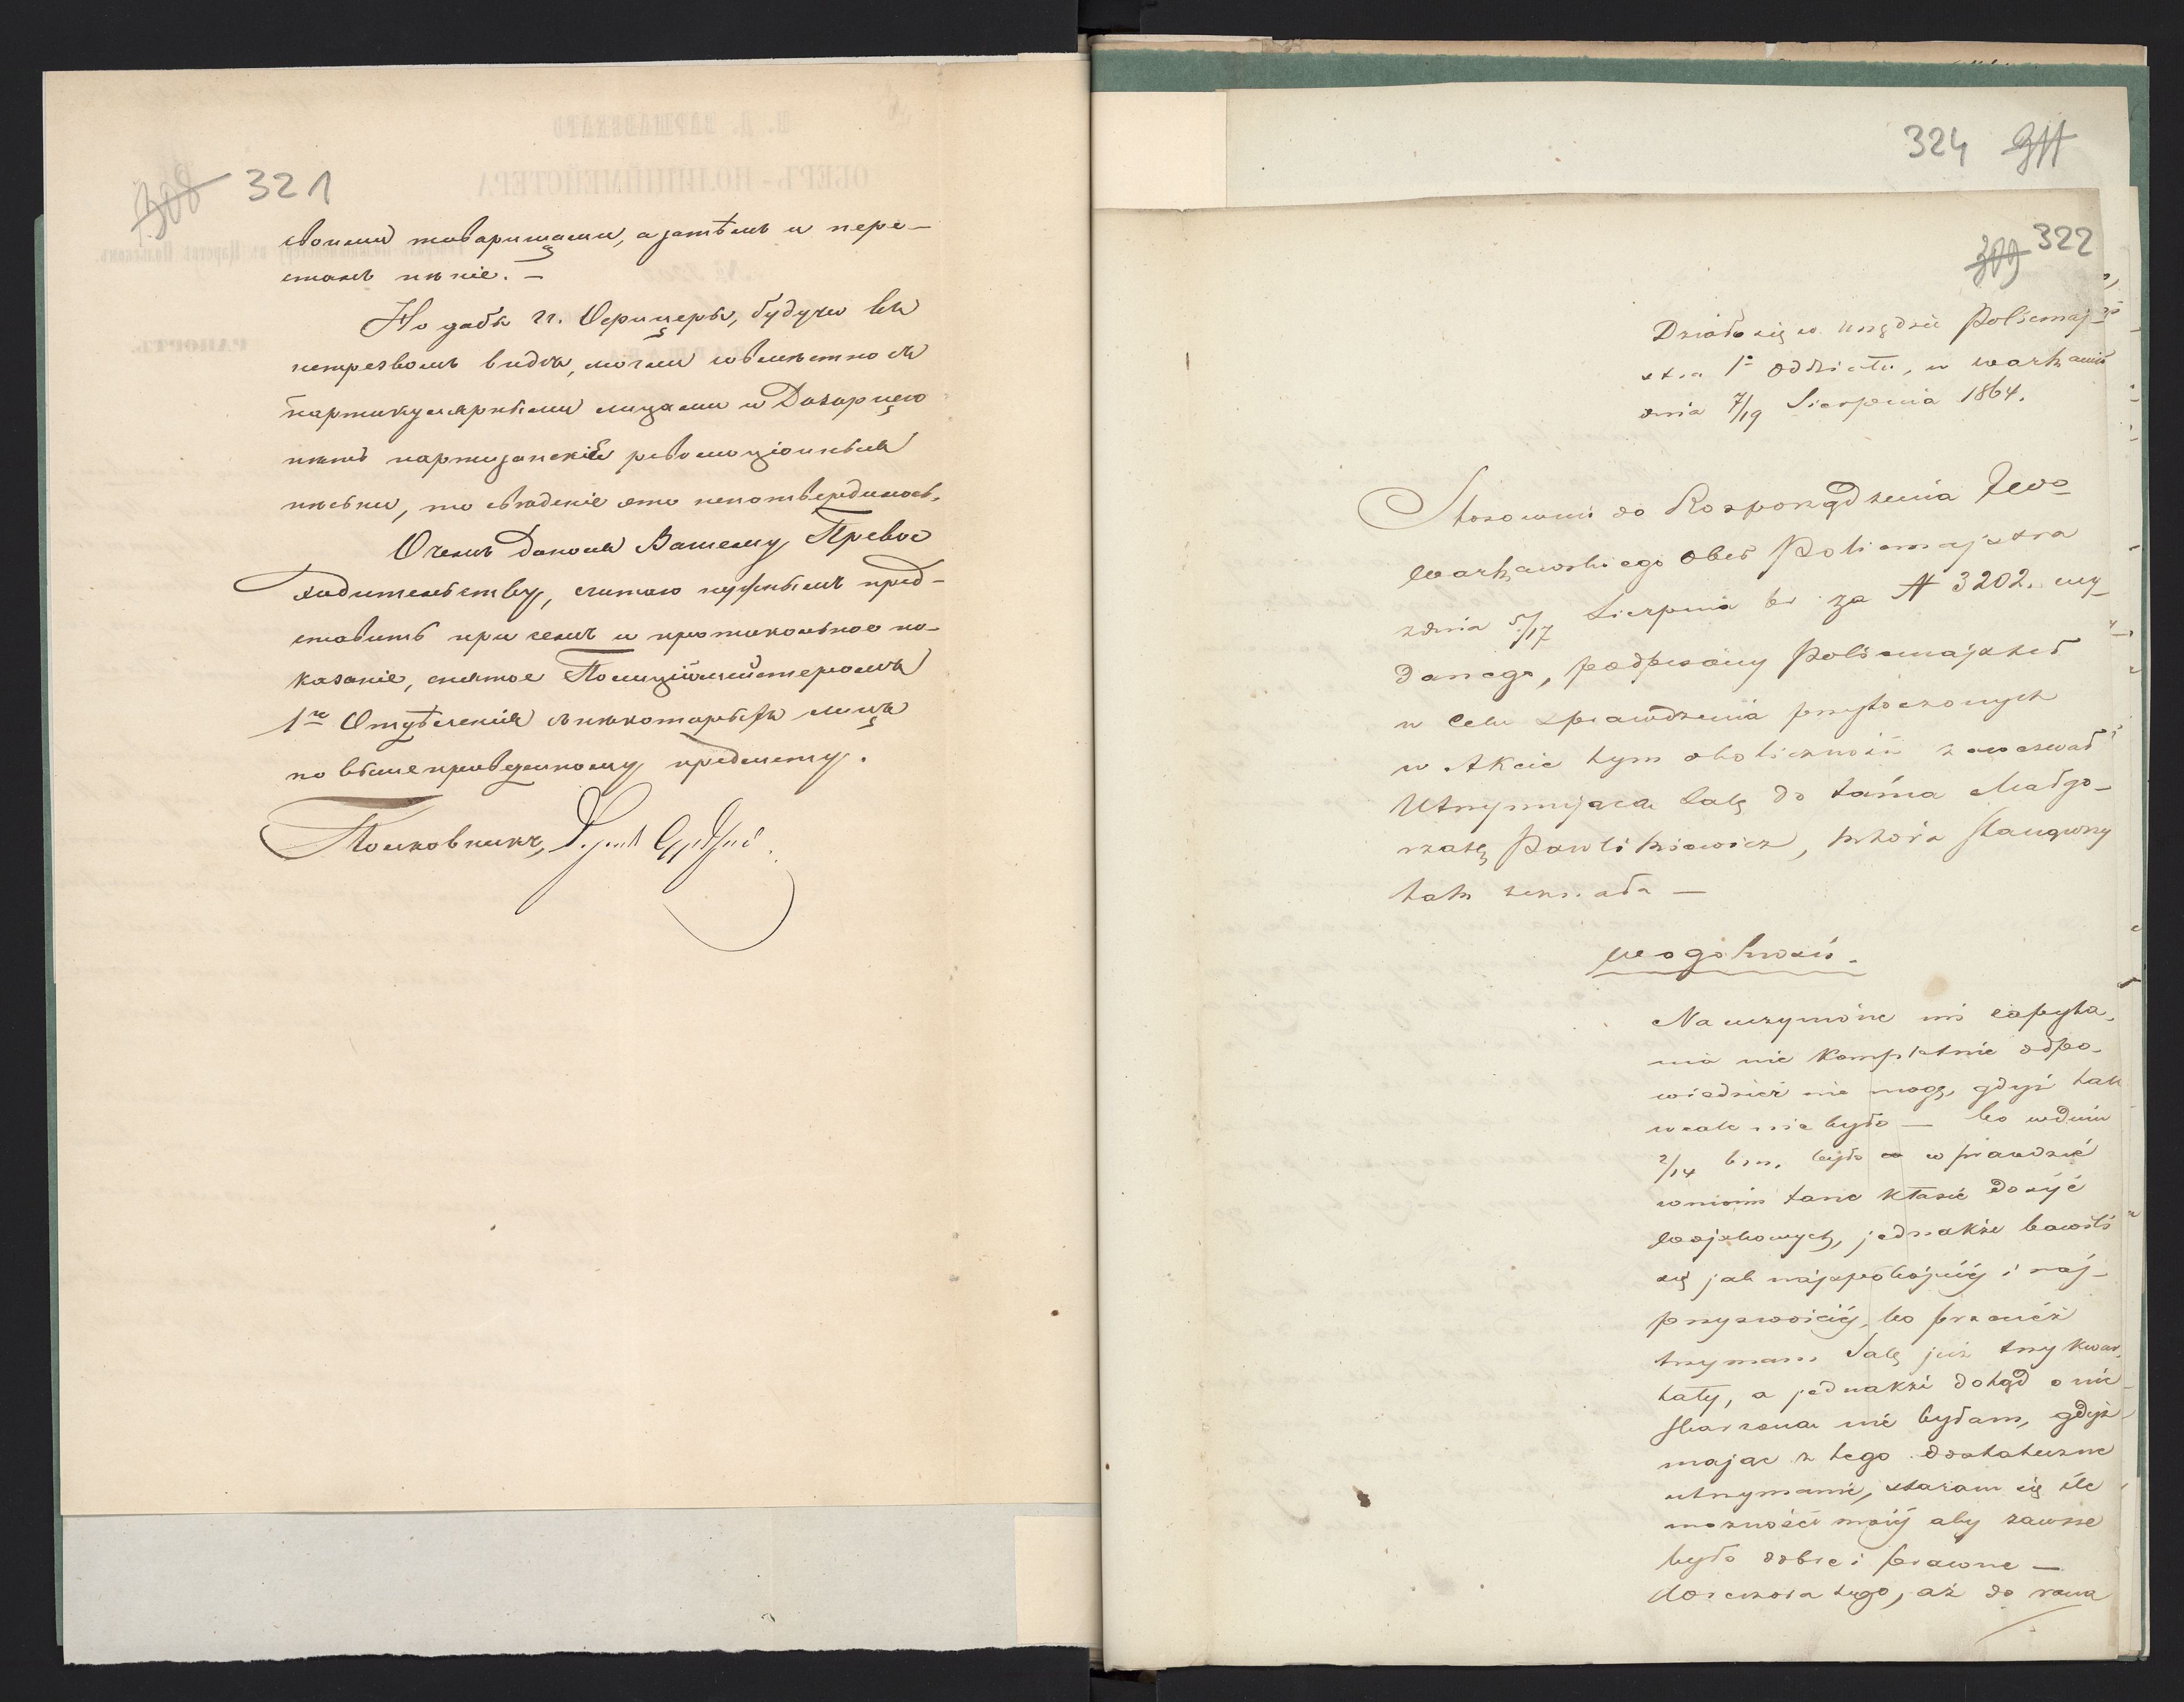 300 321
своими товарищами, а затѣмъ и пере-
сталъ пѣніе. -
Но дабы гг. Офицеры, будучи въ
нетрезвомъ видѣ, могли совмѣстно съ
партикулярными лицами и Дозорцею
пѣть партизанскія революціонныя
пѣсни, то свѣденіе это неподтвердилось.
О чемъ донося Вашему Превос
ходительству, считаю нужнымъ пред-
ставить при семъ и протокольное по-
казаніе, снятое Полиціймейстеромъ
1го Отдѣленія съ нѣкоторыхъ лицъ
по вышеприведенному предмету.
Полковникъ,
324 311
309 322
Działo się w urzędzie Policmaj-
stra 1o oddziału, w Warszawie
dnia 7/19 Sierpnia 1864.
Stosownie do Rozporządzenia Jwo
Warszawskiego Ober Policmajstra
z dnia 5/17 Sierpnia br za N 3202. wy-
danego, podpisany Policmajster
w celu sprawdzenia przytoczonych
w Akcie tym okoliczności zawezwał
Utrzymującą Salę do tańca Małgo-
rzatę Pawlikiewicz, która stanąwszy
tak zeznała —
w ogólności.
Na uczynione mi zapyta-
nia nic kompletnie odpo-
wiedzieć nie mogę, gdyż tak
wcale nie było — bo w dniu
2/14 bm. było w prawdzie
w moim tanc klasie dosyć
Wojskowych, jednakże bawili
się jak najspokojniej i naj-
przyzwoiciej, bo przecież
trzymam Salę już trzy kwar-
tały, a jednakże dotąd o nic
skarzona nie byłam, gdyż
mając z tego dostateczne
utrzymanie, staram się ile
możności mojej aby zawsze
było dobrze i prawne —
wieczora tego, aż do rana